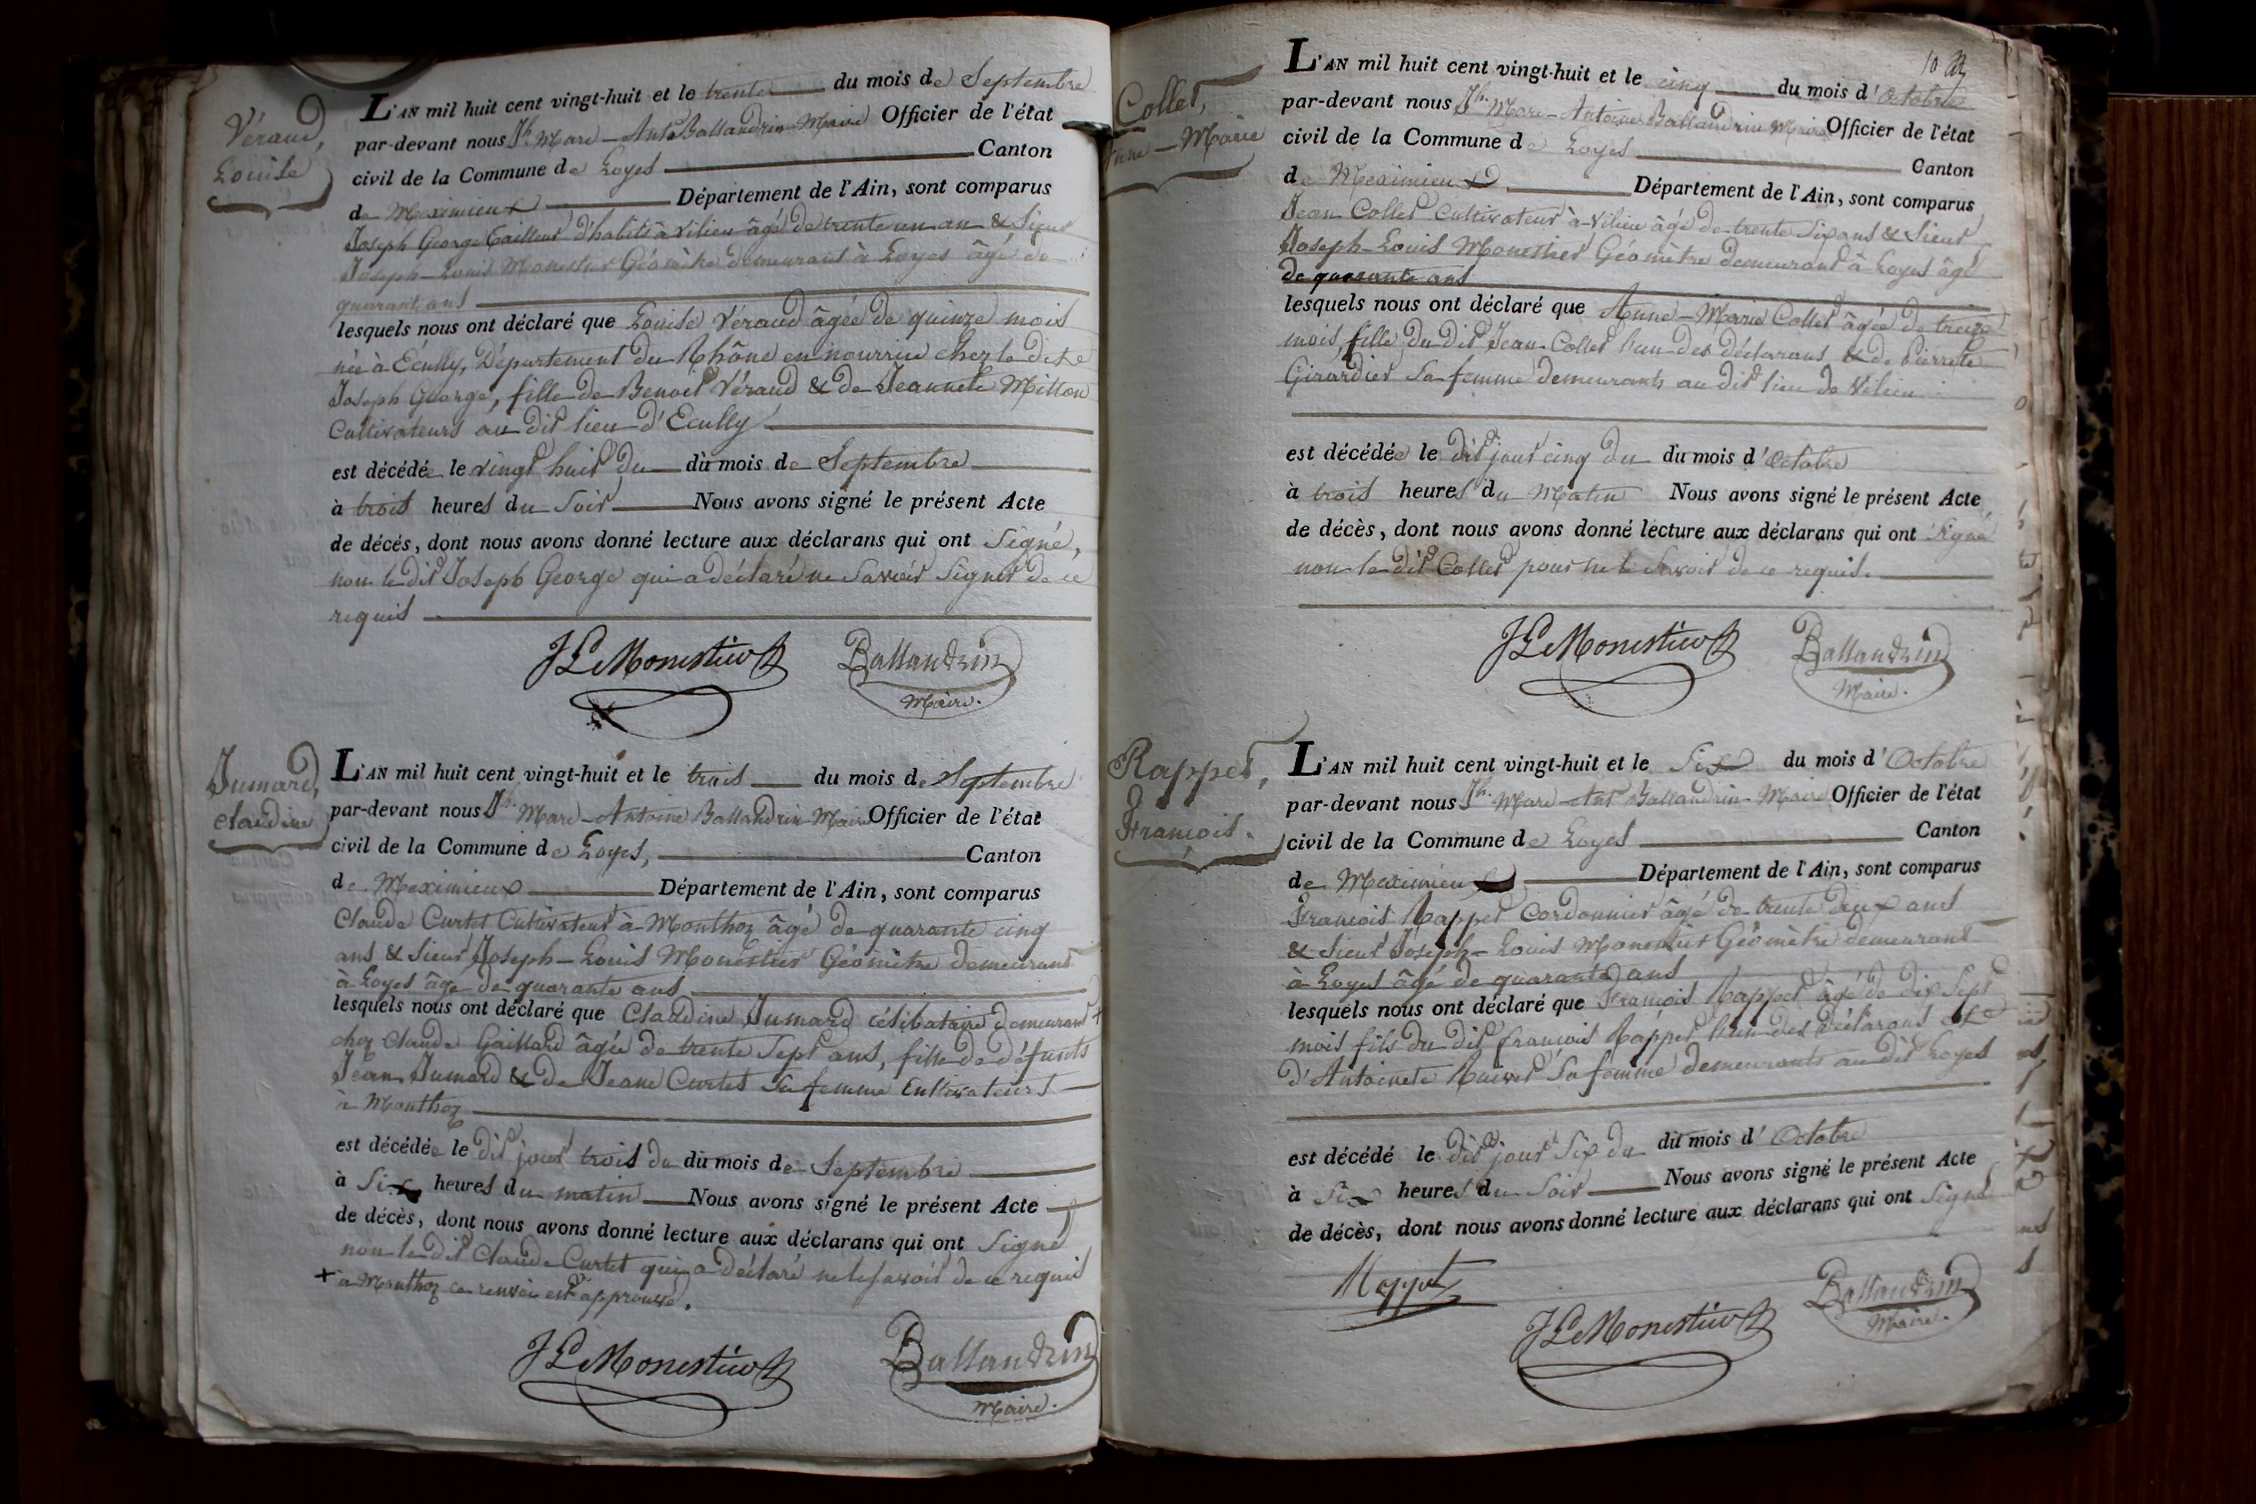 Véraud,
Louise
L'AN mil huit cent vingt-huit et le trente du mois de Septembre
par-devant nous Jh. Marc-Ant. Ballandrin Maire Officier de l'état
civil de la Commune de Loyes Canton
de Meximieux Département de l'Ain, sont comparus
Joseph George tailleur d'habits à Vilieu âgé de trente un an & Sieur
Joseph-Louis Monestier Géomètre demeurant à Loyes âgé de
quarant ans
lesquels nous ont déclaré que Louise Véraud âgée de quinze mois
née à Écully, Département du Rhône en nourrice chez le dit
Joseph George, fille de Benoit Véraud & de Jeannete Mitton
Cultivateurs au dit lieu d'Ecully
est décédée le vingt huit du dù mois de Septembre
à trois heures du Soir Nous avons signé le présent Acte
de décés, dont nous avons donné lecture aux déclarans qui ont Signé,
non le dit Joseph George qui a déclaré ne Savoir Signer de ce
requis
JLMonestier
Ballandrin
Maire.
Jumard,
Claudine
L'AN mil huit cent vingt-huit et le trois du mois de Septembre
par-devant nous Jh. Marc-Antoine Ballandrin Maire Officier de l'état
civil de la Commune de Loyes, Canton
de Meximieux Département de l'Ain, sont comparus
Claude Curtet Cultivateur à Monthoz âgé de quarante cinq
ans & Sieur Joseph-Louis Monestier Géomètre demeurant
à Loyes âgé de quarante ans
lesquels nous ont déclaré que Claudine Jumard célibataire demeurant +
chez Claude Gaillard âgée de trente Sept ans, fille de défunts
Jean Jumard & de Jeane Curtet Sa femme Cultivateurs
à Monthoz
est décédée le dit jour trois du dù mois de Septembre
à Six heures du matin Nous avons signé le présent Acte
de décès, dont nous avons donné lecture aux déclarans qui ont Signé
non le dit Claude Curtet qui a déclaré ne le savoir de ce requis
+ à Monthoz ce renvoi est approuvé.
JLMonestier
Ballandrin
Maire.
10
Collet,
Anne-Marie
L'AN mil huit cent vingt-huit et le cinq du mois d'Octobre
par-devant nous Jh. Marc-Antoine Ballandrin Maire Officier de l'état
civil de la Commune de Loyes Canton
de Meximieux Département de l'Ain, sont comparus
Jean Collet Cultivateur à Vilieu âgé de trente Six ans & Sieur
Joseph-Louis Monestier Géomètre demeurant à Loyes âgé
de quarante ans
lesquels nous ont déclaré que Anne-Marie Collet âgée de treize
mois, fille du dit Jean Collet l'un des déclarans & de Pierrette
Girardier Sa femme demeurants au dit lieu de Vilieu
est décédée le dit jour cinq du du mois d'Octobre
à trois heures du Matin Nous avons signé le présent Acte
de décès, dont nous avons donné lecture aux déclarans qui ont Signé
non le dit Collet pour ne le Savoir de ce requis.
JLMonestier
Ballandrin
Maire.
Rappet,
François.
L'AN mil huit cent vingt-huit et le Six du mois d'Octobre
par-devant nous Jh. Marc-Ant Ballandrin Maire Officier de l'état
civil de la Commune de Loyes Canton
de Meximieux Département de l'Ain, sont comparus
François Rappet Cordonnier âgé de trente deux ans
& Sieur Joseph-Louis Monestier Géomètre demeurant
à Loyes âgé de quarante ans
lesquels nous ont déclaré que François Rappet âgé de dix Sept
mois fils du dit françois Rappet l'un des déclarans &
d'Antoinete Sa femme demeurants au dit Loyes
est décédé le dit jour Six du dit mois d'Octobre
à Six heures du Soir Nous avons signé le présent Acte
de décès, dont nous avons donné lecture aux déclarans qui ont Signé
Rappet
JLMonestier
Ballandrin
Maire.